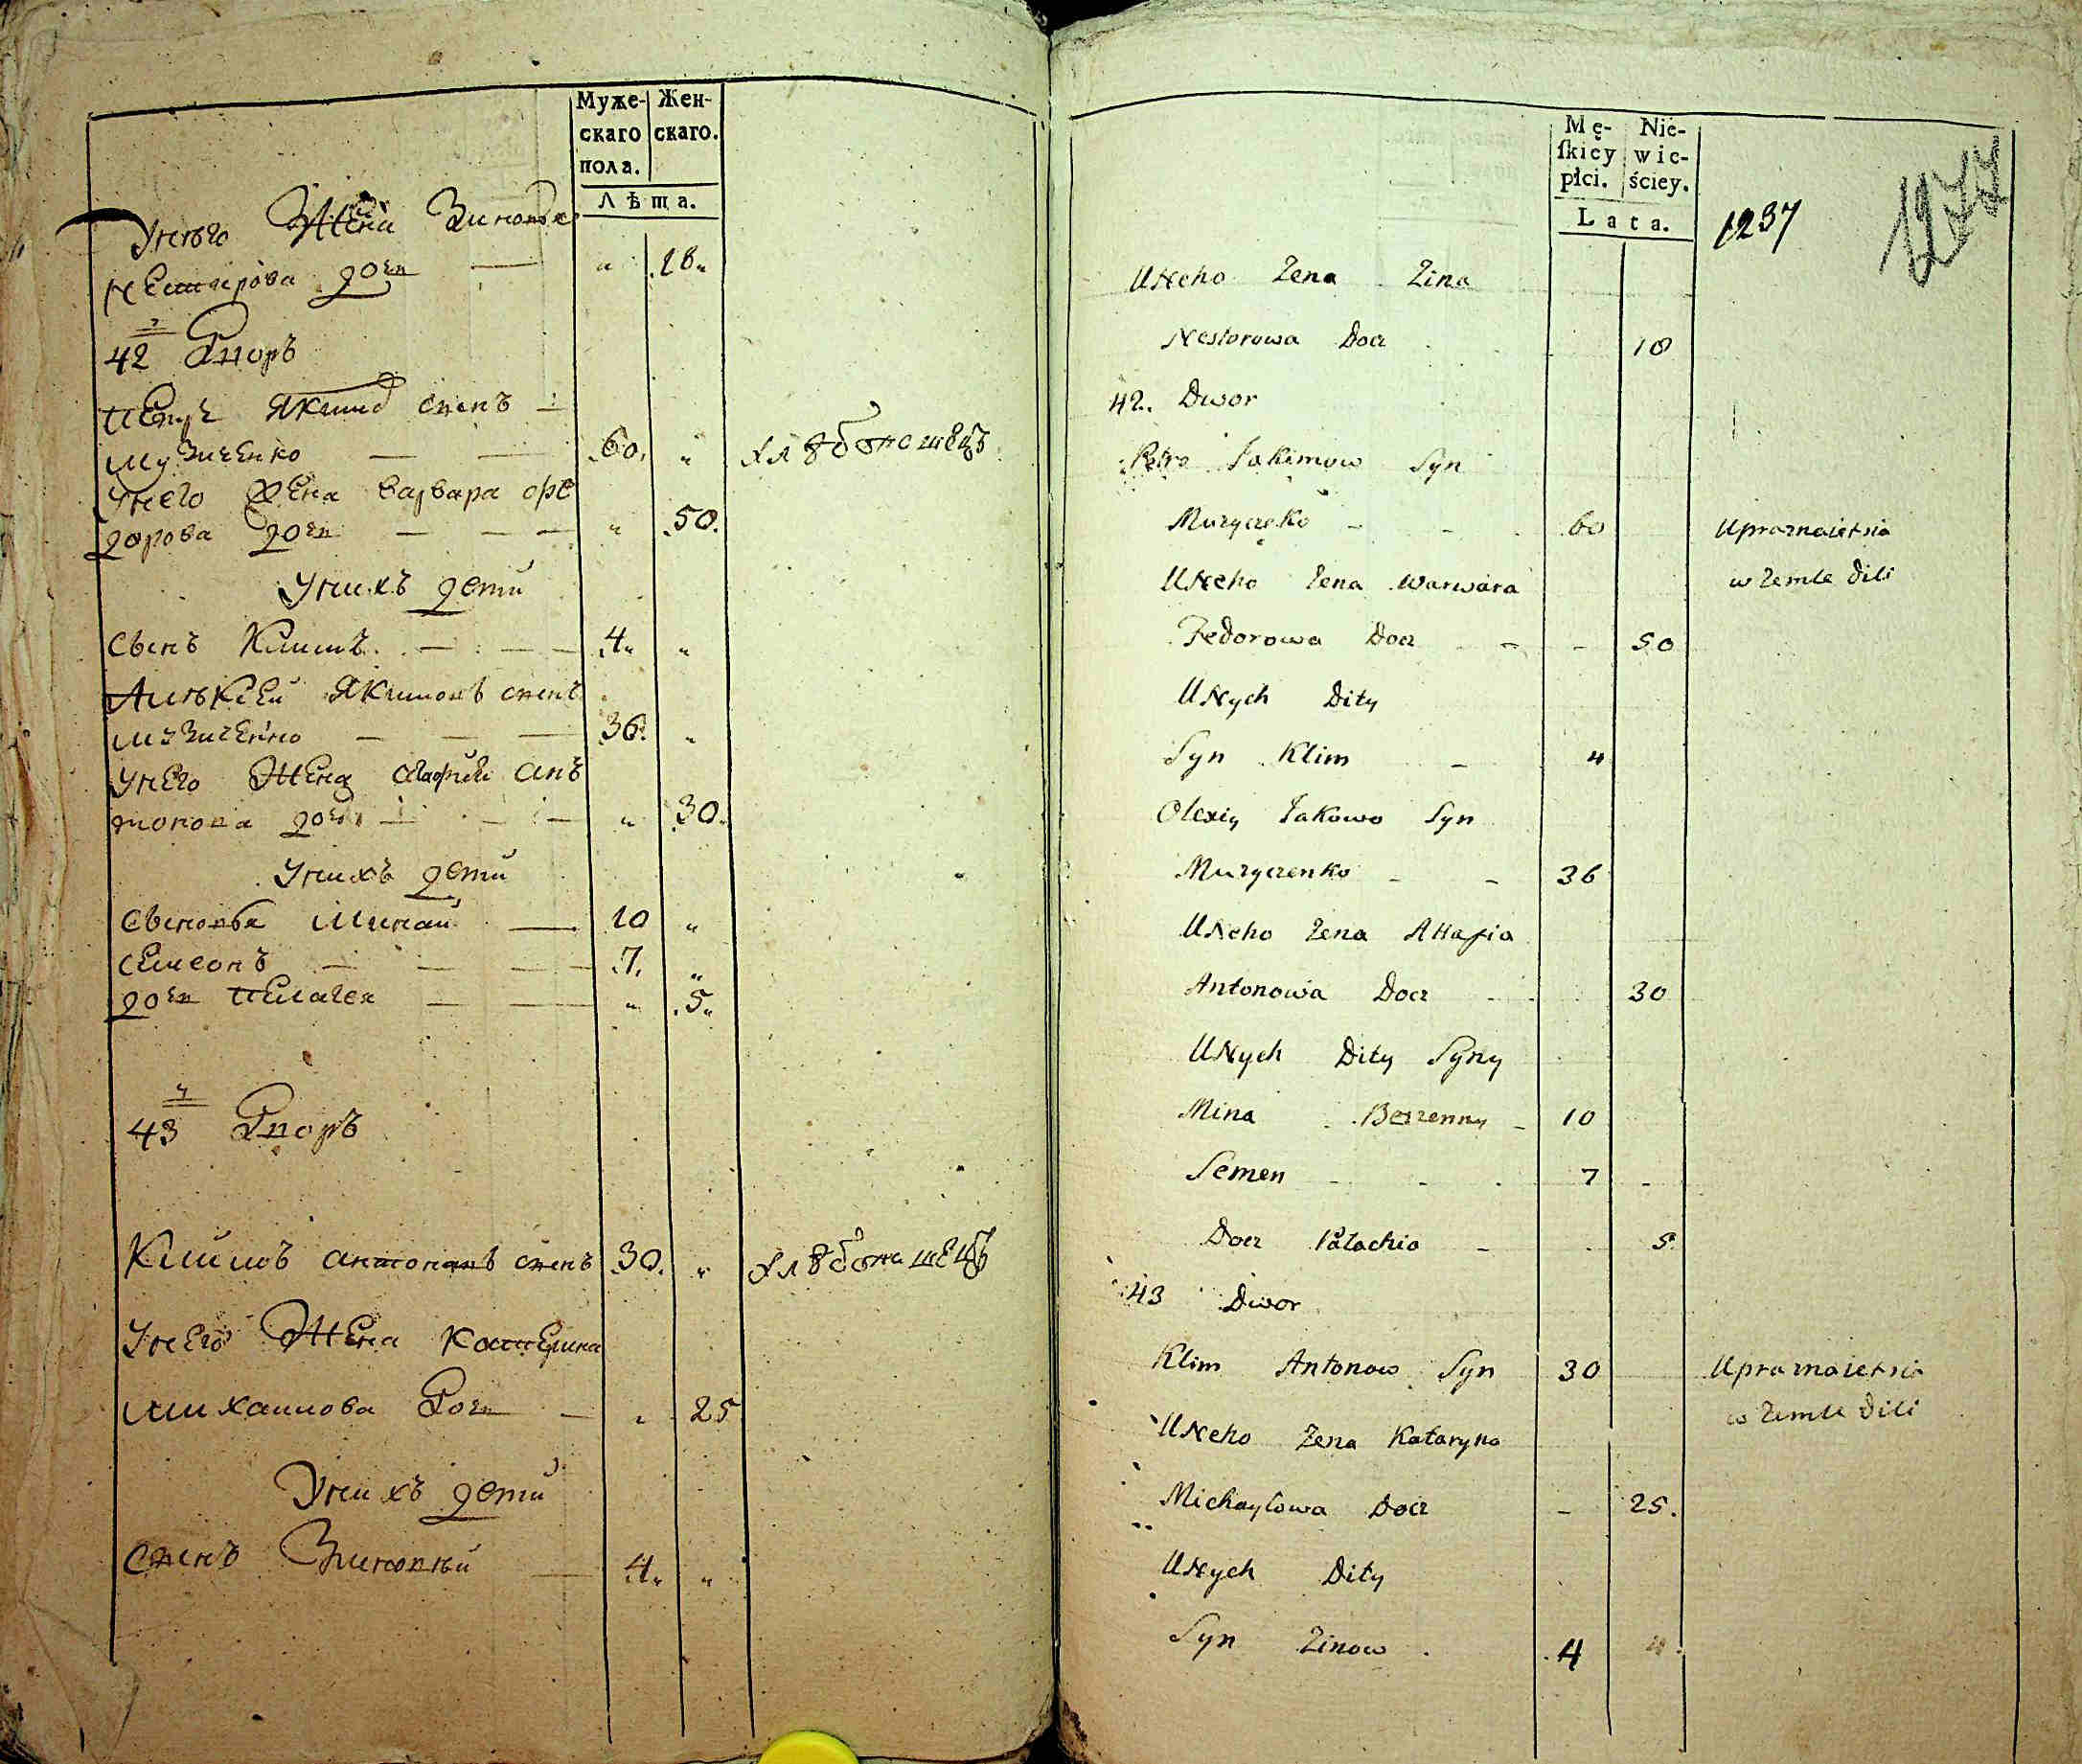 Муже-
скаго
пола.
Жен-
скаго.
Лѣта.
Унего Жена Зиновья
Нестерова дочь — " 18"
42 Дворъ
Петръ Якимовъ сынъ —
Музиченко — — 60. "
хлебопашецъ
Унего Жена Варвара Фе
дорова дочь — — — " 50.
Унихъ дети
Сынъ Климъ — — — 4" "
Алѣксей Якимовъ сынъ
Музиченко — — — 36. "
Унего Жена Агафия Ан
тонова дочь — — — " 30.
Унихъ дети
Сыновья Минай — 10 "
Семеонъ — — — 7. "
дочь Пелагея — — " 5"
43 Дворъ
Климъ Антоновъ сынъ 30. " хлебопашецъ
Унего Жена Катерина
Михаилова Дочь — " 25
Унихъ дети
Сынъ Зиновѣй — 4" "
Mę-
ſkiey
płci.
Nie-
wie-
ściey.
Lata.
1237
1277
UNeho Zena Zina
Nestorowa Docz 18
42. Dwor
Petro Jakimow Syn
Muzyczeko - - 60 Upraznaietsia
w Zemle dili
UNeho Zena Warwara
Fedorowa Docz - - 50
UNych Dity
Syn Klim - 4
Olexiy Jakowo Syn
Muzyczenko - - 36
UNeho Zena AHafia
Antonowa Docz 30
UNych Dity Syny
Mina - 10
Semen - - 7 -
Docz Pałachia - 5
43 Dwor
Klim Antonow Syn 30 Upraznaietsia
w Zemle dili
UNeho Zena Kataryna
Michayłowa Docz - 25.
UNych Dity
Syn Zinow 4 4